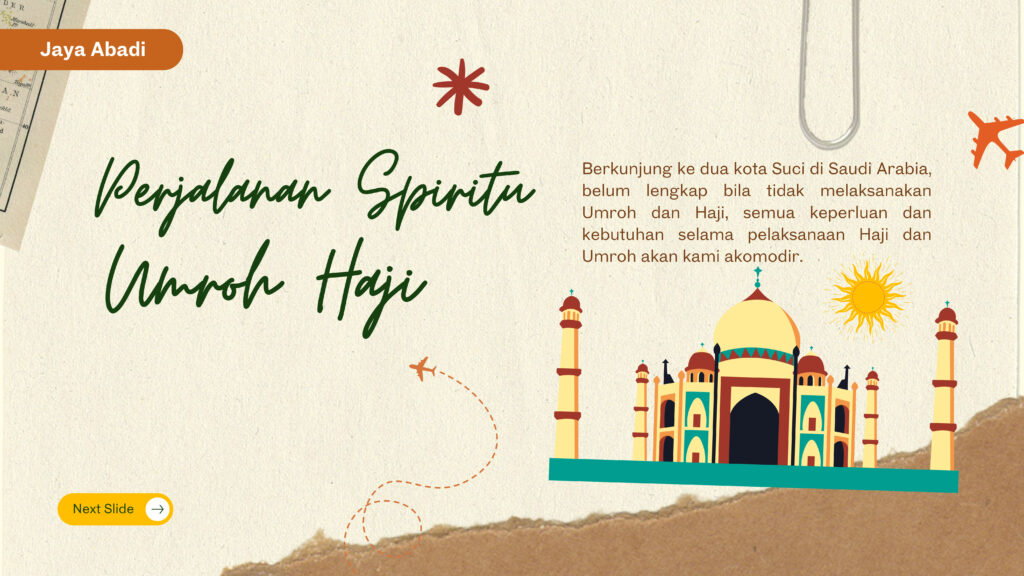 Jaya Abadi
Perjalanan Spiritu
Umroh Haji
Berkunjung ke dua kota Suci di Saudi Arabia,
belum lengkap bila tidak melaksanakan
Umroh dan Haji, semua keperluan dan
kebutuhan selama pelaksanaan Haji dan
Umroh akan kami akomodir.
Next Slide